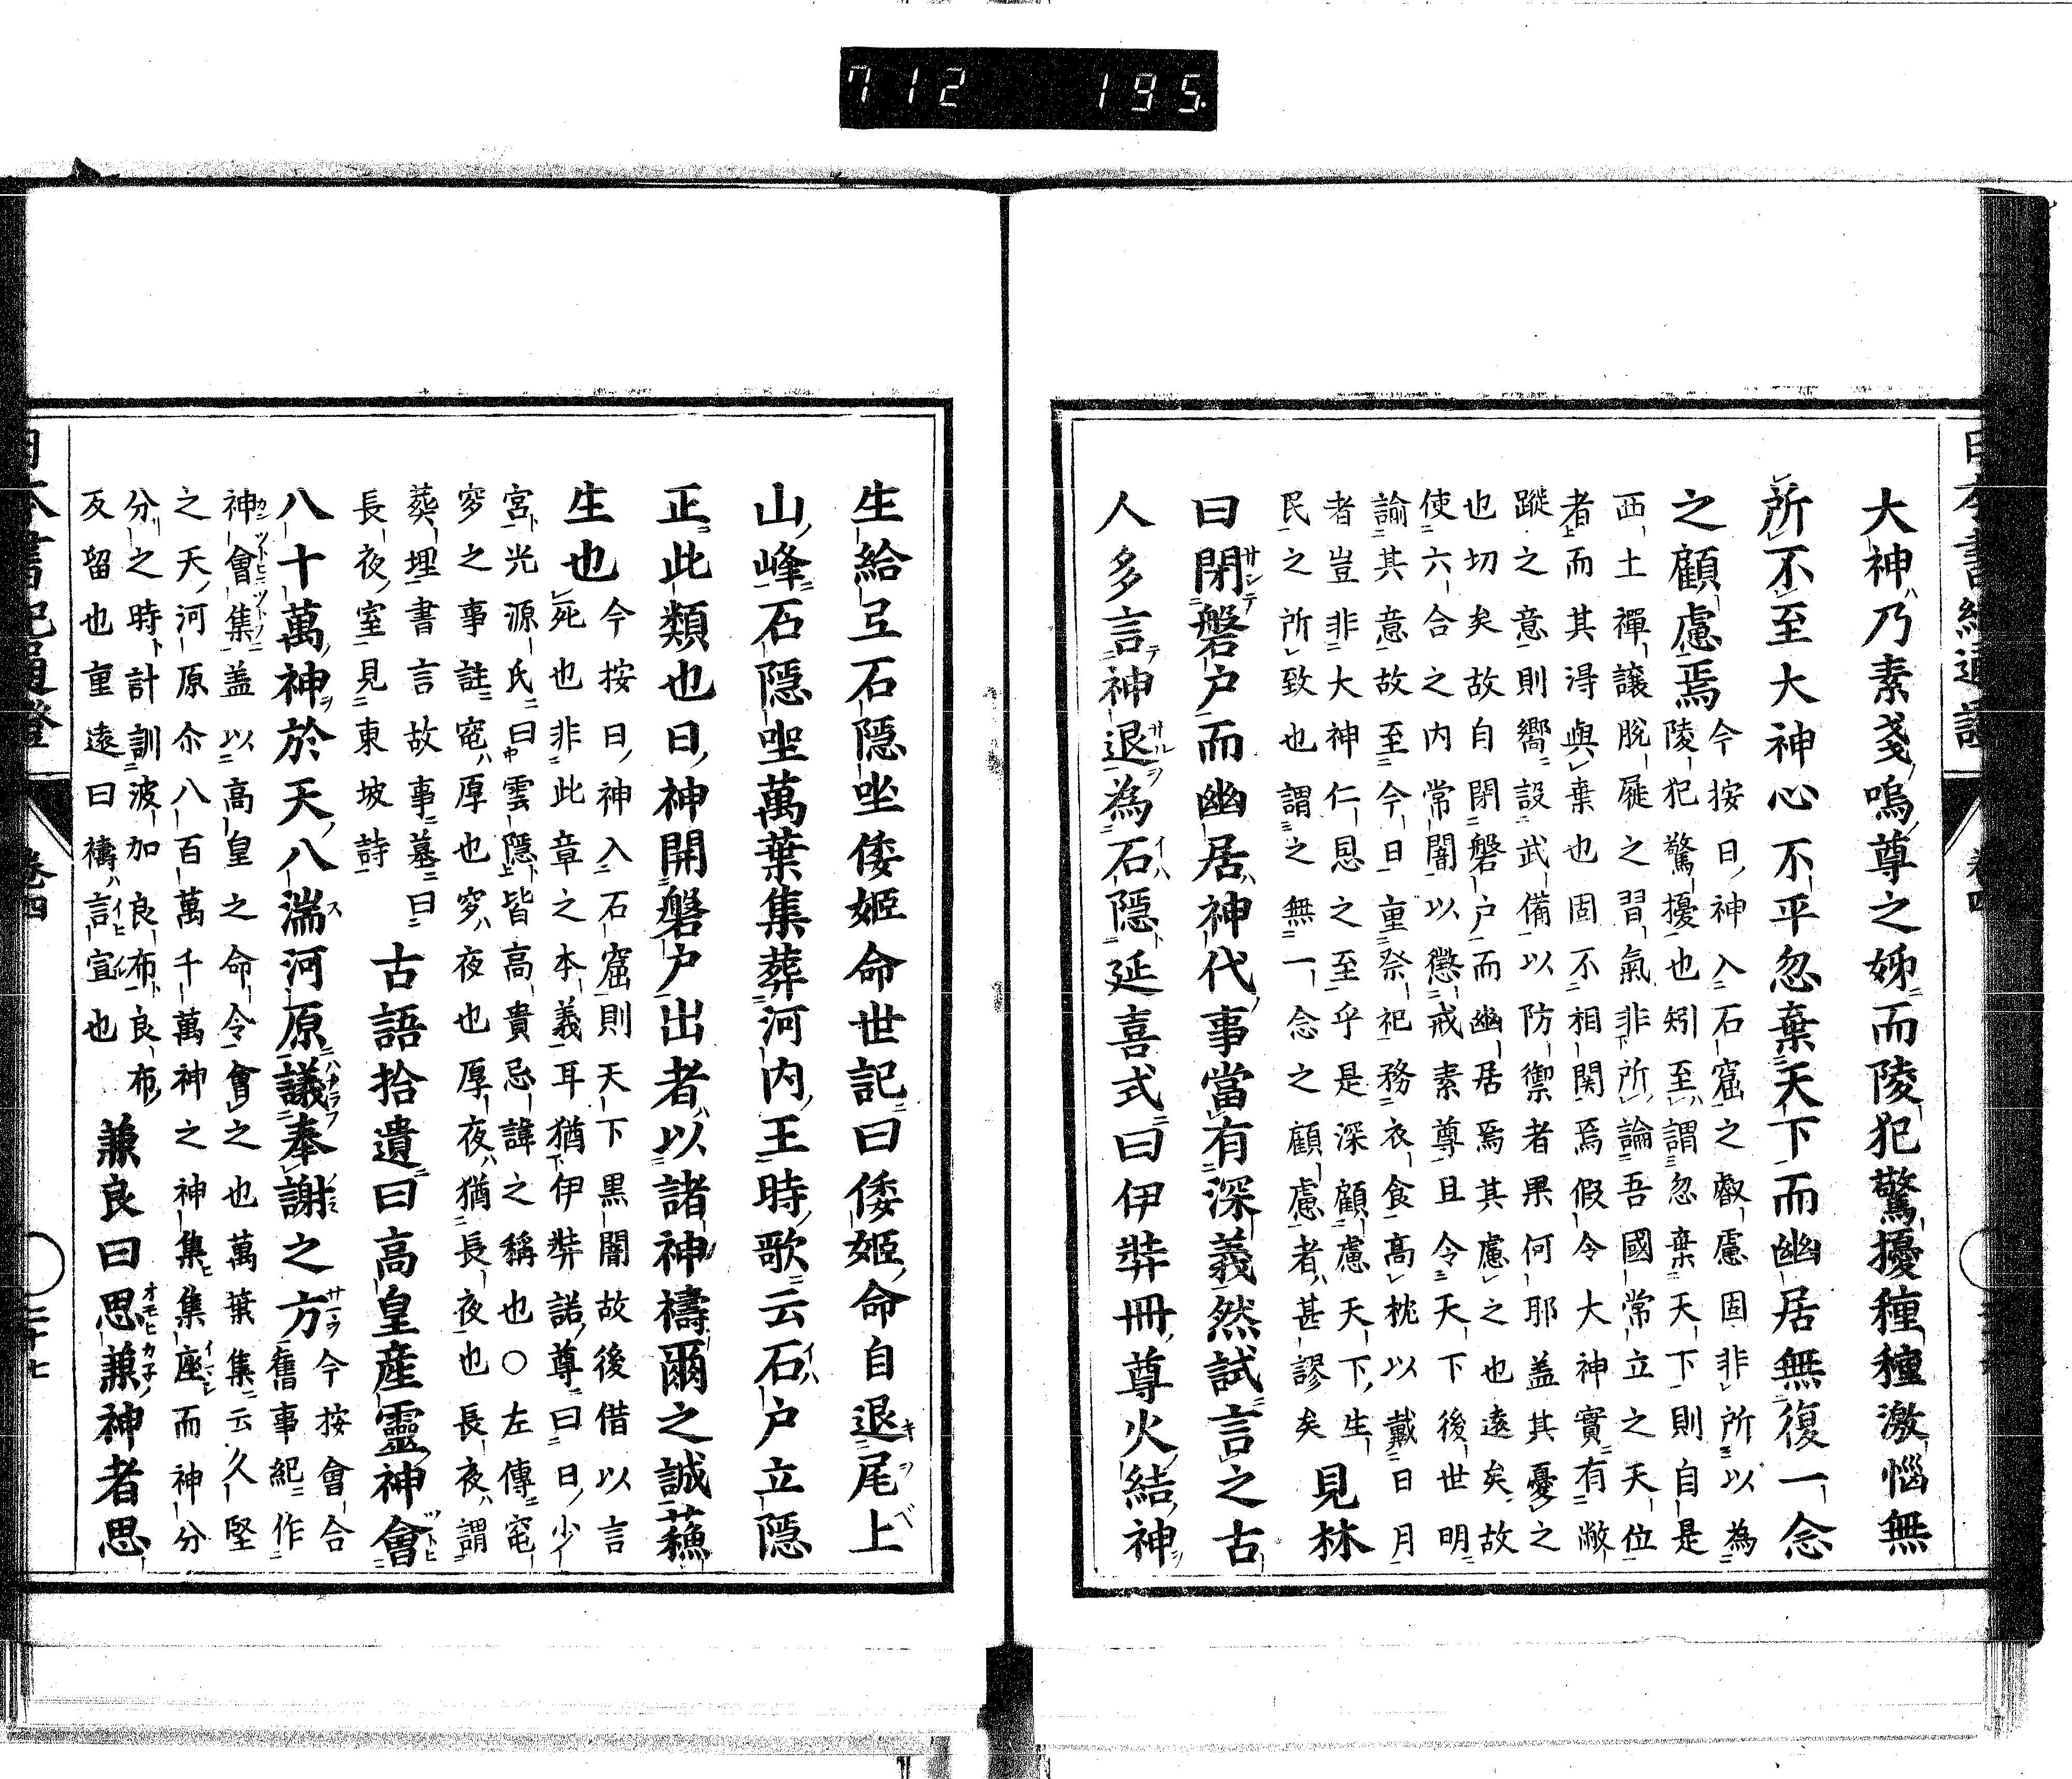 712 195.
大神乃素戔嗚尊之姊而陵犯驚擾種種激惱無
所不至大神心不平忽棄天下而幽居無復一念
之顧慮焉
今按曰神入石窟之叡慮固非所以為
陵犯驚擾也矧至謂忽棄天下則自是
西土禪讓脫屣之習氣非所論吾國常立之天位
者而其淂與棄也固不相関焉假令大神實有敝
蹝之意則嚮設武備以防禦者果何耶盖其憂之
也切矣故自閉磐戶而幽居焉其慮之也遠矣故
使六合之內常闇以懲戒素尊且令天下後世明
諭其意故至今日重祭祀務衣食高枕以戴日月
者豈非大神仁恩之至乎是深顧慮天下生
民之所致也謂之無一念之顧慮者甚謬矣
見林
曰閉磐戶而幽居神代事當有深義然試言之古
人多言神退為石隱延喜式曰伊弉冊尊火結神
生給弖石隱坐倭姬命世記曰倭姬命自退尾上
山峰石隱坐萬葉集葬河內王時歌云石戶立隱
正此類也曰神開磐戶出者以諸神禱爾之誠蘓
生也
今按曰神入石窟則天下黑闇故後借以言
死也非此章之本義耳猶伊弉諾尊曰日少
宮光源氏曰雲隱皆高貴忌諱之稱也○左傳窀
穸之事註窀厚也穸夜也厚夜猶長夜也長夜謂
葬埋書言故事墓曰
長夜室見東坡詩
古語拾遺曰高皇產靈神會
八十萬神於天八湍河原議奉謝之方
今按會合
舊事紀作
神會集盖以高皇之命令會之也萬葉集云久堅
之天河原尒八百萬千萬神之神集集座而神分
分之時計訓波加良布良布
反留也重遠曰禱言宣也
兼良曰思兼神者思
日本書紀通證
卷四
二十七